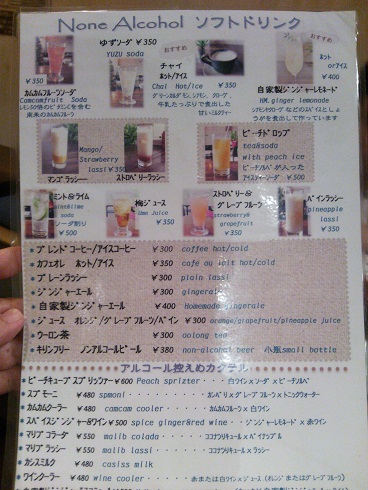 None Alcohol ソフトドリンク
ゆずソーダ ¥350
YUZU soda
おすすめ
おすすめ
チャイ
ホット/アイス
Chai Hot/ice
牛乳たっぷりで煮出した
甘いミルクティー
¥350
ホット
orアイス
¥400
¥350
カムカムフルーツソーダ
Camcomfruit Soda
自家製ジンジャーレモネード
HM.ginger lemonade
Mango/
Strawberry
lassi ¥350
マンゴラッシー
ストロベリーラッシー
ピーチドロップ
tea&soda
with peach ice
アイスティーソーダ ¥500
ミント&ライム
mint&lime
soda
ソーダ割り
¥500
梅ジュース
Ume Juice
¥350
ストロベリー&
グレープフルーツ
strawberry&
grapefruit
¥350
パインラッシー
pineapple
lassi
¥350
* ブレンドコーヒー/アイスコーヒー ¥300 coffee hot/cold
* カフェオレ ホット/アイス ¥350 café au lait hot/cold
* プレーンラッシー ¥300 plain lassi
* ジンジャーエール ¥300 gingerale
* 自家製ジンジャーエール ¥400 Homemade gingerale
* ジュース オレンジ/グレープフルーツ/パイン ¥300 orange/grapefruit/pineapple juice
* ウーロン茶 ¥300 oolong tea
* キリンフリー ノンアルコールビール ¥380 non-alcohol beer 小瓶small bottle
アルコール控えめカクテル
* ピーチキューブスプリッツァー ¥600 Peach sprizter・・・白ワインxソーダxピーチ
* スプモーニ ¥480 spmoni・・・・・カンパリxグレープフルーツxトニックウォーター
* カムカムクーラー ¥480 camcam cooler・・・・カムカムフルーツx白ワイン
* スパイスジンジャー&ワイン ¥500 spice ginger&red wine・・ジンジャーxスパイスx赤ワイン
* マリブコラーダ ¥550 malib colada・・・・ココナツリキュールxパイナップル
* マリブラッシー ¥550 malib lassi・・・・・ココナツリキュールxラッシー
* カシスミルク ¥480 casiss milk
* ワインクーラー ¥480 wine cooler・・・・赤または白ワインxジュース(オレンジまたはグレープフルーツ)